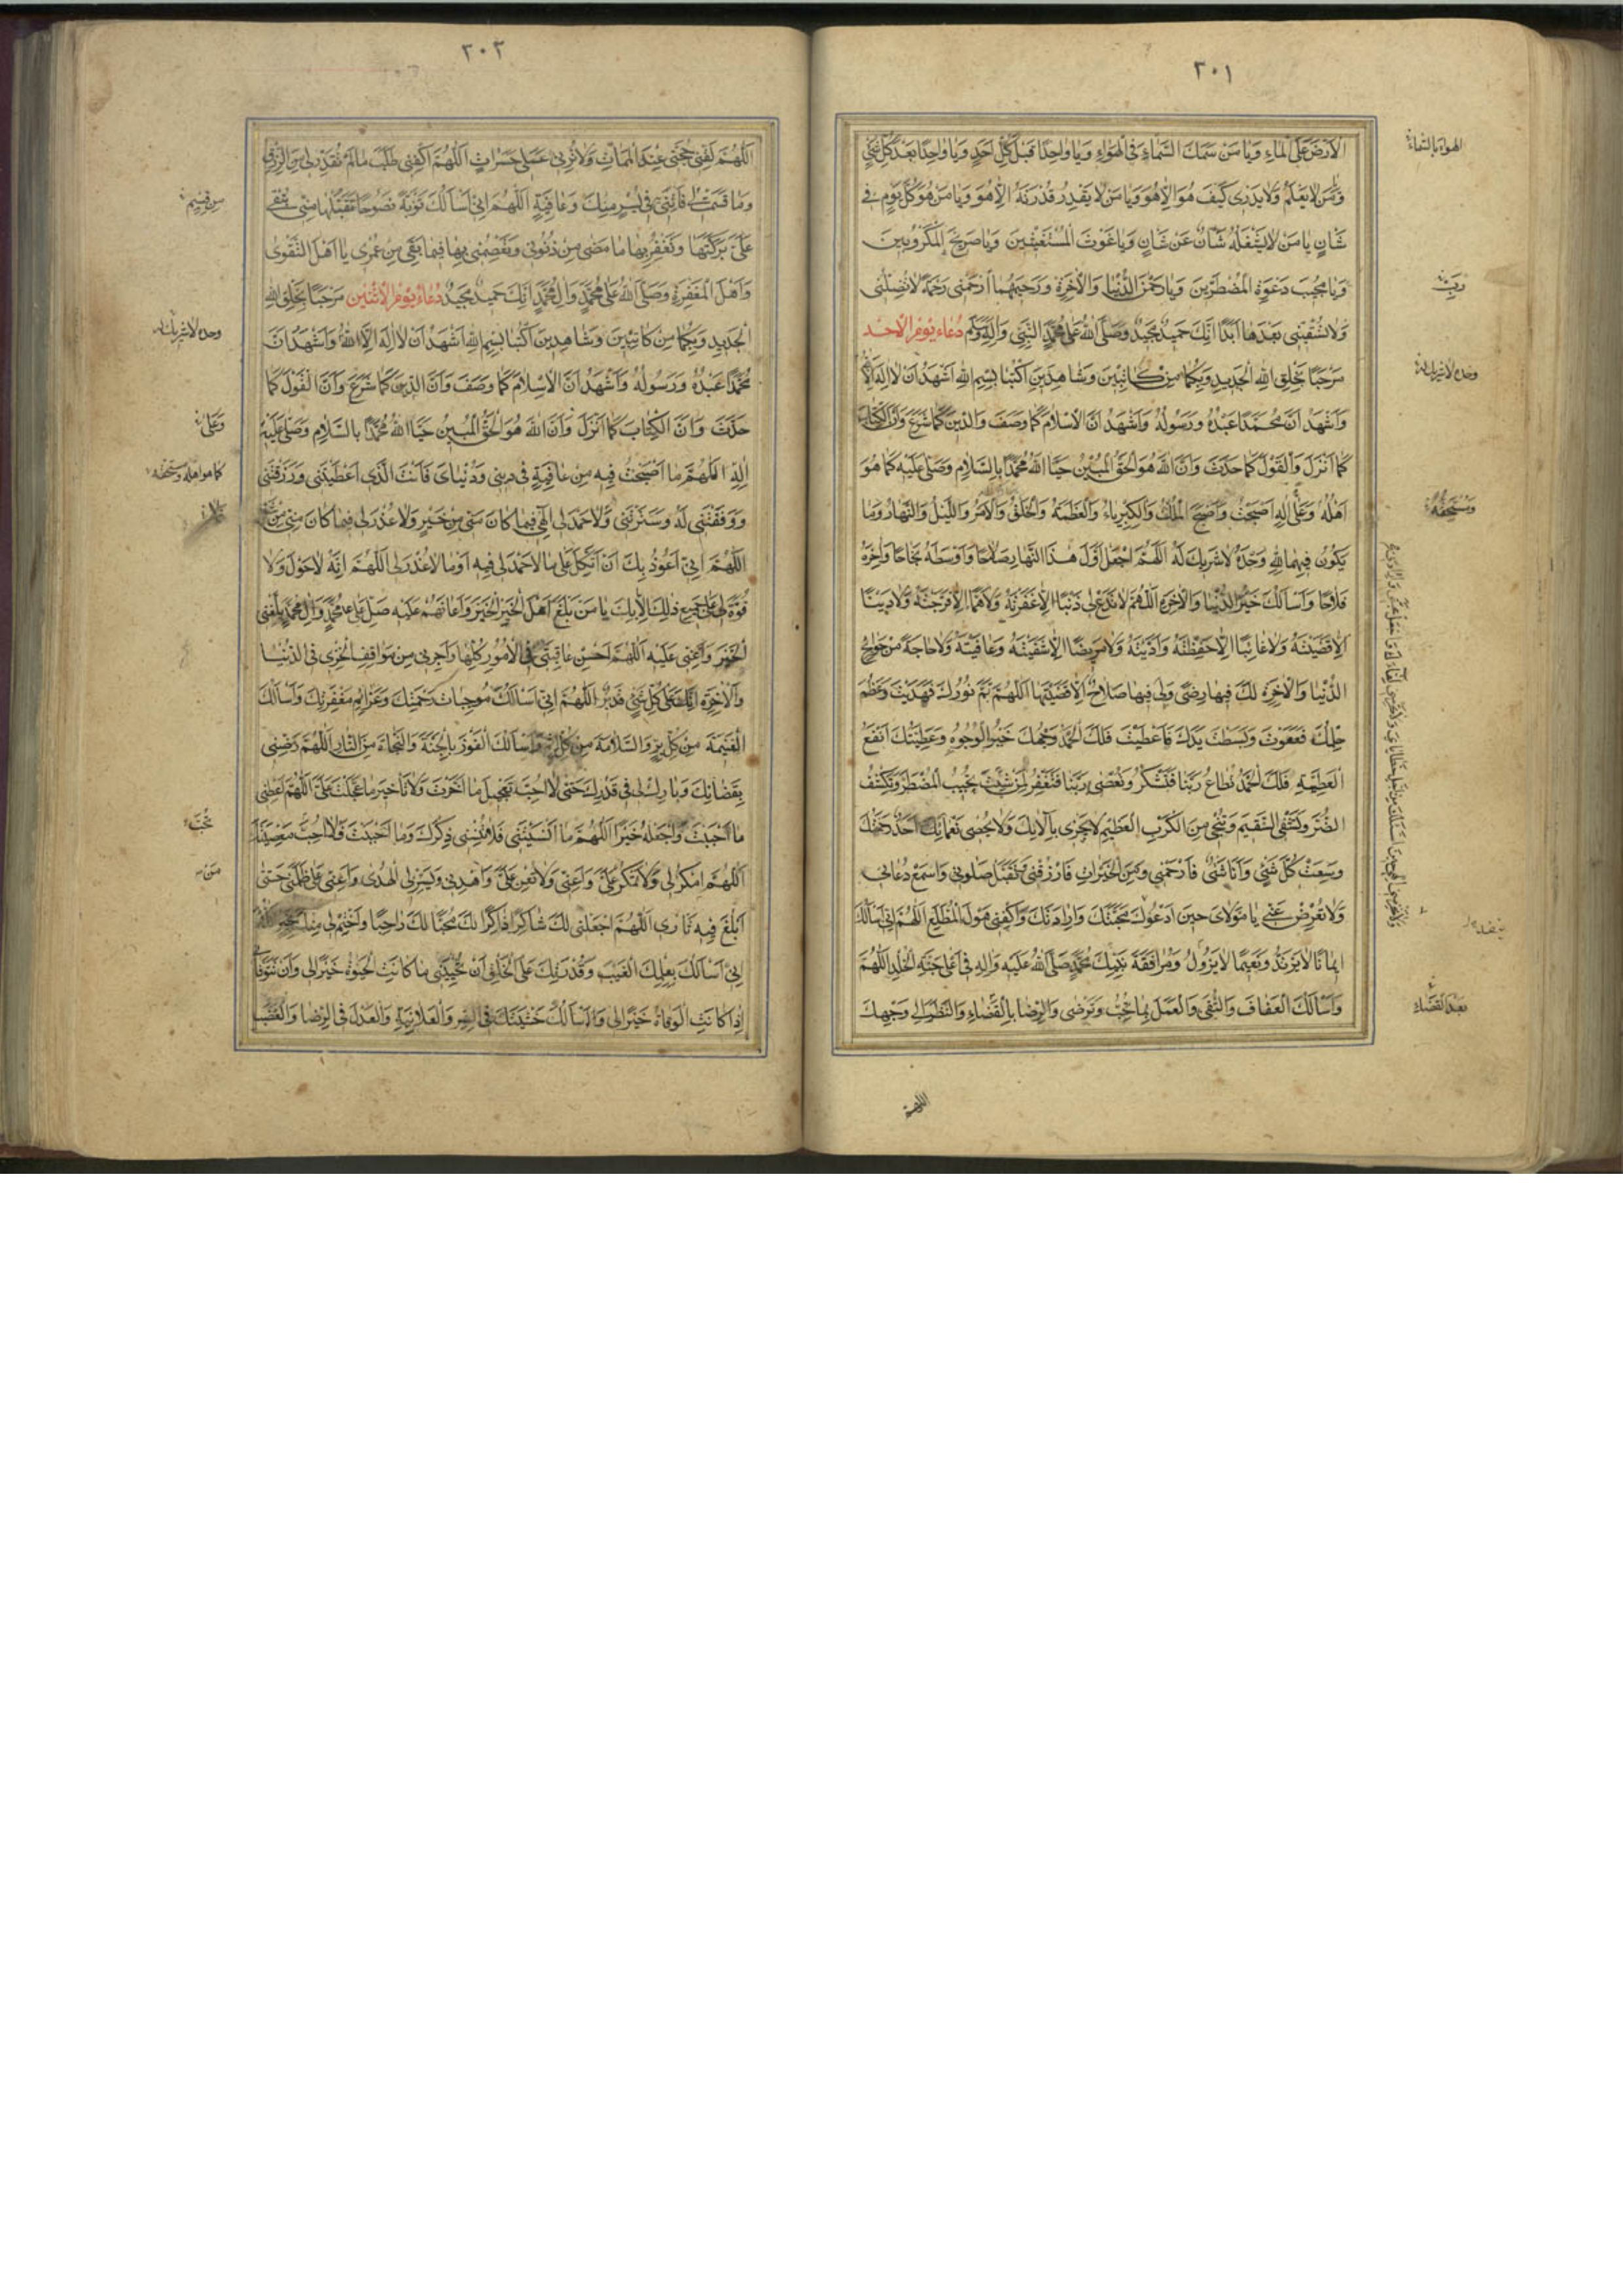 ٣٠١
الْاَرْضَ عَلَى الْمَاءِ وَيَا مَنْ سَمَكَ السَّمَاءَ فِى الْهَوَاءِ وَيَا وَاحِدًا قَبْلَ كُلِّ اَحَدٍ وَيَا وَاحِدًا بَعْدَ كُلِّ شَيْءٍ
وَمَنْ لَا يَعْلَمُ وَلَا يَدْرِى كَيْفَ هُوَ اِلَّا هُوَ وَيَا مَنْ لَا يَقْدِرُ قُدْرَتَهُ اِلَّا هُوَ وَيَا مَنْ هُوَ كُلَّ يَوْمٍ فِى
شَانٍ يَا مَنْ لَا يَشْغَلُهُ شَانٌ عَنْ شَانٍ وَيَا غَوْثَ الْمُسْتَغِيثِينَ وَيَا صَرِيخَ الْمَكْرُوبِينَ
وَيَا مُجِيبَ دَعْوَةِ الْمُضْطَرِّينَ وَيَا رَحْمٰنَ الدُّنْيَا وَالْاٰخِرَةِ وَرَحِيمَهُمَا ارْحَمْنِى رَحْمَةً لَا تُضِلُّنِى
وَلَا تُشْقِنِى بَعْدَهَا اَبَدًا اِنَّكَ حَمِيدٌ مَجِيدٌ وَصَلَّى اللهُ عَلَى مُحَمَّدٍ النَّبِىِّ وَاٰلِهِ وَسَلَّمَ دُعَاءُ يَوْمِ الْاَحَدِ
مَرْحَبًا بِخَلْقِ اللهِ الْجَدِيدِ وَبِكُمَا مِنْ كَاتِبَيْنِ وَشَاهِدَيْنِ اكْتُبَا بِسْمِ اللهِ اَشْهَدُ اَنْ لَا اِلٰهَ اِلَّا اللهُ
وَاَشْهَدُ اَنَّ مُحَمَّدًا عَبْدُهُ وَرَسُولُهُ وَاَشْهَدُ اَنَّ الْاِسْلَامَ كَمَا وَصَفَ وَالدِّينَ كَمَا شَرَعَ وَاَنَّ الْكِتَابَ
كَمَا اَنْزَلَ وَالْقَوْلَ كَمَا حَدَّثَ وَاَنَّ اللهَ هُوَ الْحَقُّ الْمُبِينُ حَيَّا اللهُ مُحَمَّدًا بِالسَّلَامِ وَصَلَّى عَلَيْهِ كَمَا هُوَ
اَهْلُهُ وَعَلَى اٰلِهِ اَصْبَحْتُ وَاَصْبَحَ الْمُلْكُ وَالْكِبْرِيَاءُ وَالْعَظَمَةُ وَالْخَلْقُ وَالْاَمْرُ وَاللَّيْلُ وَالنَّهَارُ وَمَا
يَكُونُ فِيهِمَا لِلّٰهِ وَحْدَهُ لَا شَرِيكَ لَهُ اَللّٰهُمَّ اجْعَلْ اَوَّلَ هٰذَا النَّهَارِ صَلَاحًا وَاَوْسَطَهُ نَجَاحًا وَاٰخِرَهُ
فَلَاحًا وَاَسْاَلُكَ خَيْرَ الدُّنْيَا وَالْاٰخِرَةِ اَللّٰهُمَّ لَا تَدَعْ لِى ذَنْبًا اِلَّا غَفَرْتَهُ وَلَا هَمًّا اِلَّا فَرَّجْتَهُ وَلَا دَيْنًا
اِلَّا قَضَيْتَهُ وَلَا غَائِبًا اِلَّا حَفِظْتَهُ وَاَدَّيْتَهُ وَلَا مَرِيضًا اِلَّا شَفَيْتَهُ وَعَافَيْتَهُ وَلَا حَاجَةً مِنْ حَوَائِجِ
الدُّنْيَا وَالْاٰخِرَةِ لَكَ فِيهَا رِضًى وَلِى فِيهَا صَلَاحٌ اِلَّا قَضَيْتَهَا اَللّٰهُمَّ تَمَّ نُورُكَ فَهَدَيْتَ وَعَظُمَ
حِلْمُكَ فَعَفَوْتَ وَبَسَطْتَ يَدَكَ فَاَعْطَيْتَ فَلَكَ الْحَمْدُ وَجْهُكَ خَيْرُ الْوُجُوهِ وَعَطِيَّتُكَ اَنْفَعُ
الْعَطِيَّةِ فَلَكَ الْحَمْدُ تُطَاعُ رَبَّنَا فَتَشْكُرُ وَتُعْصَى رَبَّنَا فَتَغْفِرُ لِمَنْ شِئْتَ تُجِيبُ الْمُضْطَرَّ وَتَكْشِفُ
الضُّرَّ وَتَشْفِى السَّقِيمَ وَتُنْجِى مِنَ الْكَرْبِ الْعَظِيمِ لَا يَجْزِى بِاٰلَائِكَ وَلَا يُحْصِى نَعْمَائِكَ اَحَدٌ رَحْمَتُكَ
وَسِعَتْ كُلَّ شَيْءٍ وَاَنَا شَيْءٌ فَارْحَمْنِى وَمِنَ الْخَيْرَاتِ فَارْزُقْنِى تَقَبَّلْ صَلٰوتِى وَاسْمَعْ دُعَائِى
وَلَا تُعْرِضْ عَنِّى يَا مَوْلَاىَ حِينَ اَدْعُوكَ مَحَبَّتَكَ وَاِرَادَتَكَ وَاكْفِنِى هَوْلَ الْمُطَّلَعِ اَللّٰهُمَّ اِنِّى اَسْاَلُكَ
اِيمَانًا لَا يَرْتَدُّ وَنَعِيمًا لَا يَزُولُ وَمُرَافَقَةَ نَبِيِّكَ مُحَمَّدٍ صَلَّى اللهُ عَلَيْهِ وَاٰلِهِ فِى اَعْلَى جَنَّةِ الْخُلْدِ اَللّٰهُمَّ
وَاَسْاَلُكَ الْعَفَافَ وَالتُّقَى وَالْعَمَلَ بِمَا تُحِبُّ وَتَرْضَى وَالرِّضَا بِالْقَضَاءِ وَالنَّظَرَ اِلَى وَجْهِكَ
اللهم
الهواء بالسماء
وحده لا شريك له
ومستحقه
بعد القضاء
٣٠٢
اَللّٰهُمَّ لَقِّنِى حُجَّتِى عِنْدَ الْمَمَاتِ وَلَا تُرِنِى عَمَلِى حَسَرَاتٍ اَللّٰهُمَّ اكْفِنِى طَلَبَ مَا لَمْ تُقَدِّرْ لِى مِنْ الرِّزْقِ
وَمَا قَسَمْتَ لِى فَاْتِنِى فِى يُسْرٍ مِنْكَ وَعَافِيَةٍ اَللّٰهُمَّ اِنِّى اَسْاَلُكَ تَوْبَةً نَصُوحًا تَقَبَّلُهَا مِنِّى تَبْقَى
عَلَىَّ بَرَكَتُهَا وَتَغْفِرُ بِهَا مَا مَضَى مِنْ ذُنُوبِى وَتَعْصِمُنِى بِهَا فِيمَا بَقِىَ مِنْ عُمْرِى يَا اَهْلَ التَّقْوَى
وَاَهْلَ الْمَغْفِرَةِ وَصَلَّى اللهُ عَلَى مُحَمَّدٍ وَاٰلِ مُحَمَّدٍ اِنَّكَ حَمِيدٌ مَجِيدٌ دُعَاءُ يَوْمِ الْاِثْنَيْنِ مَرْحَبًا بِخَلْقِ اللهِ
الْجَدِيدِ وَبِكُمَا مِنْ كَاتِبَيْنِ وَشَاهِدَيْنِ اكْتُبَا بِسْمِ اللهِ اَشْهَدُ اَنْ لَا اِلٰهَ اِلَّا اللهُ وَاَشْهَدُ اَنَّ
مُحَمَّدًا عَبْدُهُ وَرَسُولُهُ وَاَشْهَدُ اَنَّ الْاِسْلَامَ كَمَا وَصَفَ وَاَنَّ الدِّينَ كَمَا شَرَعَ وَاَنَّ الْقَوْلَ كَمَا
حَدَّثَ وَاَنَّ الْكِتَابَ كَمَا اَنْزَلَ وَاَنَّ اللهَ هُوَ الْحَقُّ الْمُبِينُ حَيَّا اللهُ مُحَمَّدًا بِالسَّلَامِ وَصَلَّى عَلَيْهِ
اٰلِهِ اَللّٰهُمَّ مَا اَصْبَحْتُ فِيهِ مِنْ عَافِيَةٍ فِى دِينِى وَدُنْيَاىَ فَاَنْتَ الَّذِى اَعْطَيْتَنِى وَرَزَقْتَنِى
وَوَفَّقْتَنِى لَهُ وَسَتَرْتَنِى وَلَا حَمْدَ لِى اِلٰهِى فِيمَا كَانَ مِنِّى مِنْ خَيْرٍ وَلَا عُذْرَ لِى فِيمَا كَانَ مِنِّى مِنْ شَرٍّ
اَللّٰهُمَّ اِنِّى اَعُوذُ بِكَ اَنْ اَتَّكِلَ عَلَى مَا لَا حَمْدَ لِى فِيهِ اَوْ مَا لَا عُذْرَ لِى اَللّٰهُمَّ اِنَّهُ لَا حَوْلَ وَلَا
قُوَّةَ لِى عَلَى جَمِيعِ ذٰلِكَ اِلَّا بِكَ يَا مَنْ بَلَّغَ اَهْلَ الْخَيْرِ الْخَيْرَ وَاَعَانَهُمْ عَلَيْهِ صَلِّ عَلَى مُحَمَّدٍ وَاٰلِ مُحَمَّدٍ بَلِّغْنِى
الْخَيْرَ وَاَعِنِّى عَلَيْهِ اَللّٰهُمَّ اَحْسِنْ عَاقِبَتِى فِى الْاُمُورِ كُلِّهَا وَاَجِرْنِى مِنْ مَوَاقِفِ الْخِزْىِ فِى الدُّنْيَا
وَالْاٰخِرَةِ اِنَّكَ عَلَى كُلِّ شَيْءٍ قَدِيرٌ اَللّٰهُمَّ اِنِّى اَسْاَلُكَ مُوجِبَاتِ رَحْمَتِكَ وَعَزَائِمَ مَغْفِرَتِكَ وَاَسْاَلُكَ
الْغَنِيمَةَ مِنْ كُلِّ بِرٍّ وَالسَّلَامَةَ مِنْ كُلِّ اِثْمٍ وَاَسْاَلُكَ الْفَوْزَ بِالْجَنَّةِ وَالنَّجَاةَ مِنَ النَّارِ اَللّٰهُمَّ رَضِّنِى
بِقَضَائِكَ وَبَارِكْ لِى فِى قَدَرِكَ حَتّٰى لَا اُحِبَّ تَعْجِيلَ مَا اَخَّرْتَ وَلَا تَاْخِيرَ مَا عَجَّلْتَ عَلَىَّ اَللّٰهُمَّ اَعْطِنِى
مَا اَحْبَبْتَ وَاجْعَلْهُ خَيْرًا اَللّٰهُمَّ مَا اَنْسَيْتَنِى فَلَا تُنْسِنِى ذِكْرَكَ وَمَا اَحْبَبْتَ فَلَا اُحِبُّ مَعْصِيَتَكَ
اَللّٰهُمَّ امْكُرْ لِى وَلَا تَمْكُرْ عَلَىَّ وَاَعِنِّى وَلَا تُعِنْ عَلَىَّ وَاهْدِنِى وَيَسِّرْ لِى الْهُدٰى وَاَعِنِّى عَلَى مَنْ ظَلَمَنِى حَتّٰى
اَبْلُغَ فِيهِ ثَارِى اَللّٰهُمَّ اجْعَلْنِى لَكَ شَاكِرًا ذَاكِرًا لَكَ مُحِبًّا لَكَ رَاهِبًا وَاخْتِمْ لِى مِنْكَ بِخَيْرٍ اَللّٰهُمَّ
اِنِّى اَسْاَلُكَ بِعِلْمِكَ الْغَيْبَ وَقُدْرَتِكَ عَلَى الْخَلْقِ اَنْ تُحْيِيَنِى مَا كَانَتِ الْحَيٰوةُ خَيْرًا لِى وَاَنْ تَتَوَفَّانِى
اِذَا كَانَتِ الْوَفَاةُ خَيْرًا لِى وَاَسْاَلُكَ خَشْيَتَكَ فِى السِّرِّ وَالْعَلَانِيَةِ وَالْعَدْلَ فِى الرِّضَا وَالْغَضَبِ
وحده لا شريك له
وعلى
كما هو اهله ومستحقه